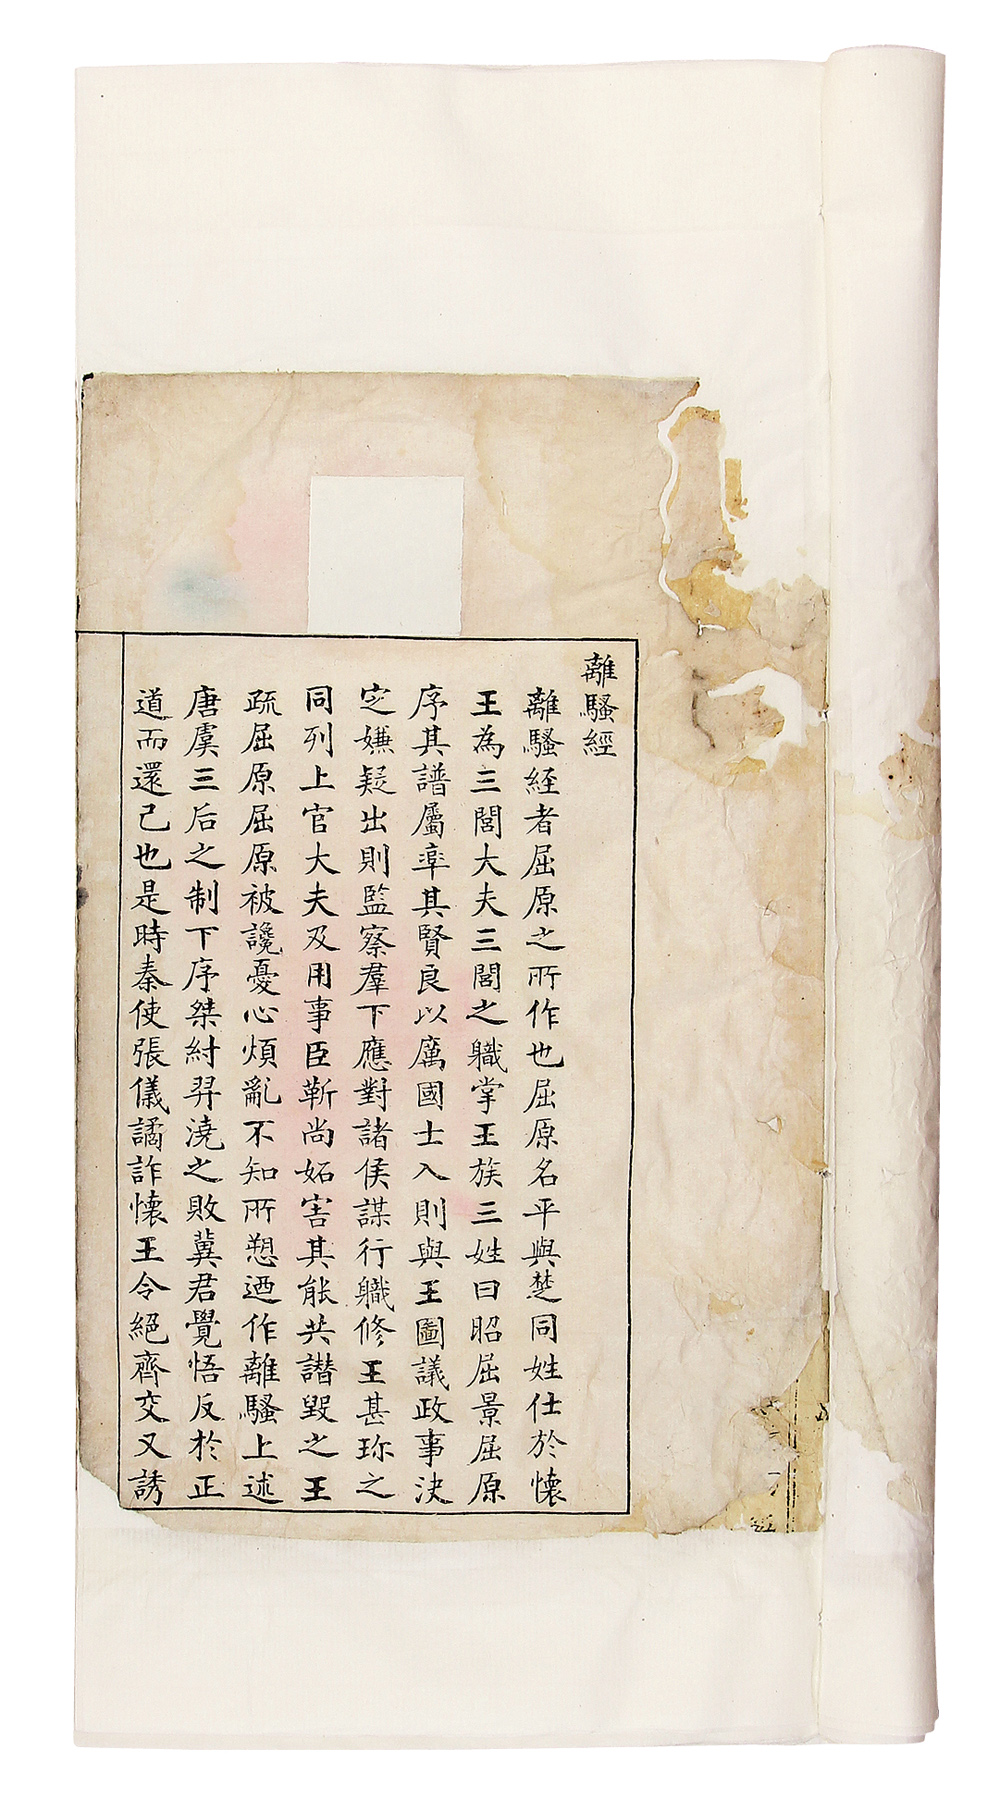 離騷經
離騷經者屈原之所作也屈原名平與楚同姓仕於懷
王為三閭大夫三閭之職掌王族三姓曰昭屈景屈原
序其譜屬率其賢良以厲國士入則與王圖議政事決
定嫌疑出則監察羣下應對諸侯謀行職修王甚珎之
同列上官大夫及用事臣靳尚妬害其能共譖毀之王
疏屈原屈原被讒憂心煩亂不知所愬迺作離騷上述
唐虞三后之制下序桀紂羿澆之敗冀君覺悟反於正
道而還己也是時秦使張儀譎詐懷王令絕齊交又誘